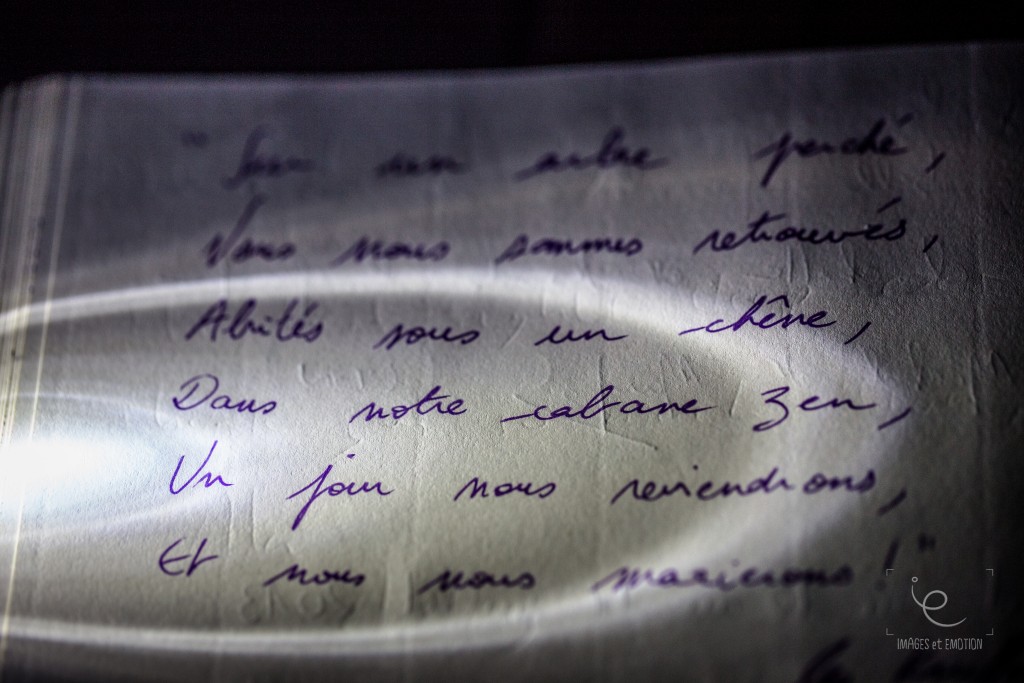 "Sur un arbre perché,
Nous nous sommes retrouvés,
Abrités sous un chêne,
Dans notre cabane Zen,
Un jour nous reviendrons,
Et nous nous marierons !"
IMAGES et EMOTION